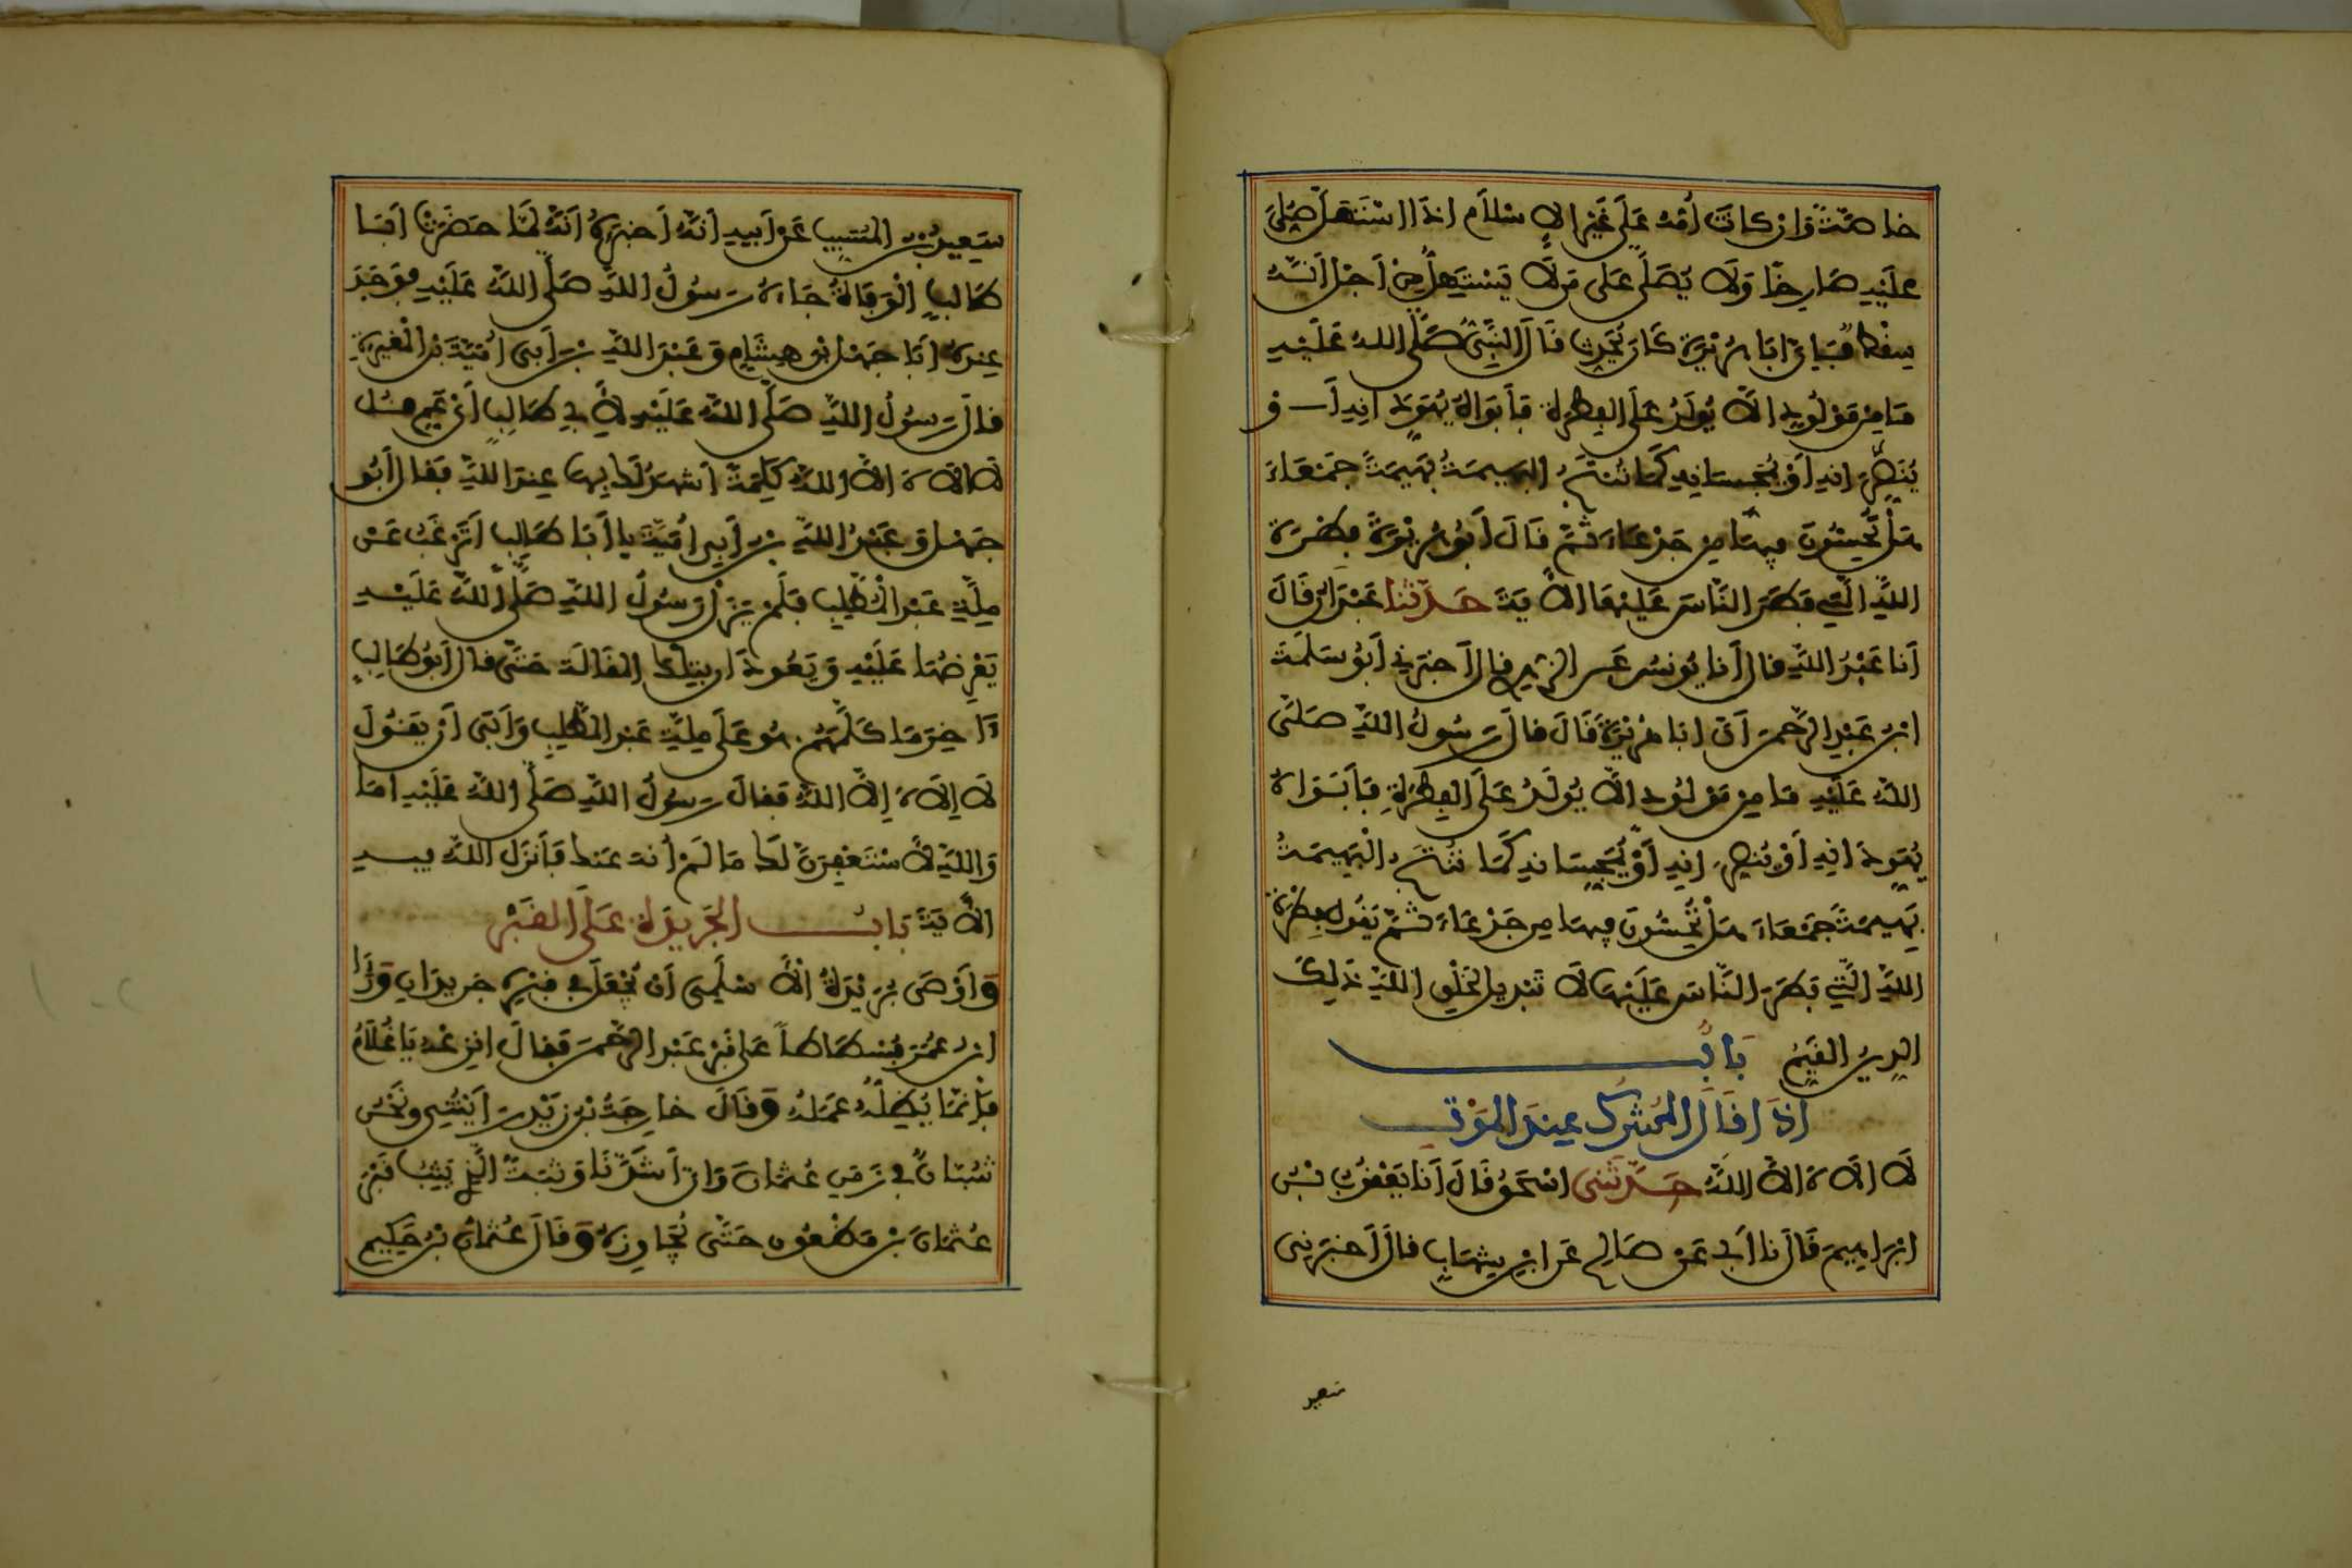 خاصَّةً وَإِن كانَت أُمُّهُ عَلَى غَيْرِ الإسْلَامِ إذَا اسْتَهَلَّ صُلِّيَ
عَلَيْهِ صَارِخًا وَلَا يُصَلَّى عَلَى مَن لَا يَسْتَهِلُّ مِنْ أَجْلِ أَنَّهُ
سِقْطٌ فَإِنَّ أبَا هُرَيْرَةَ كَانَ يُحَدِّثُ قَالَ النَّبِيُّ صَلَّى اللهُ عَلَيْهِ
مَا مِن مَوْلُودٍ إلَّا يُولَدُ عَلَى الفِطْرَةِ فَأَبَوَاهُ يُهَوِّدَانِهِ أَوْ
يُنَصِّرَانِهِ أَوْ يُمَجِّسَانِهِ كَمَا تُنْتَجُ البَهِيمَةُ بَهِيمَةً جَمْعَاءَ
هَلْ تُحِسُّونَ فِيهَا مِن جَدْعَاءَ ثُمَّ قَالَ أَبُو هُرَيْرَةَ فِطْرَةَ
اللَّهِ الَّتِي فَطَرَ النَّاسَ عَلَيْهَا الآيَةَ حَدَّثَنَا عَبْدَانُ قَالَ
أَنَا عَبْدُ اللَّهِ قَالَ أَنَا يُونُسُ عَنِ الزُّهْرِيِّ قَالَ أَخْبَرَنِي أَبُو سَلَمَةَ
ابْنُ عَبْدِ الرَّحْمَنِ أَنَّ أبَا هُرَيْرَةَ قَالَ قَالَ رَسُولُ اللَّهِ صَلَّى
اللهُ عَلَيْهِ مَا مِن مَوْلُودٍ إلَّا يُولَدُ عَلَى الفِطْرَةِ فَأَبَوَاهُ
يُهَوِّدَانِهِ أَوْ يُنَصِّرَانِهِ أَوْ يُمَجِّسَانِهِ كَمَا تُنْتَجُ الْبَهِيمَةُ
بَهِيمَةً جَمْعَاءَ هَلْ تُحِسُّونَ فِيهَا مِن جَدْعَاءَ ثُمَّ يَقُولُ فِطْرَةَ
اللَّهِ الَّتِي فَطَرَ النَّاسَ عَلَيْهَا لَا تَبْدِيلَ لِخَلْقِ اللَّهِ ذَلِكَ
الدِّينُ القَيِّمُ بَابٌ
إذَا قَالَ المُشْرِكُ عِندَ المَوْتِ
لَا إلَهَ إلَّا اللَّهُ حَدَّثَنِي إسْحَقُ قَالَ أَنَا يَعْقُوبُ بْنُ
إبْرَاهِيمَ قَالَ نا أَبِي عَنْ صَالِحٍ عَنِ ابْنِ شِهَابٍ قَالَ أَخْبَرَنِي
سعيد
سَعِيدُ بْنُ المُسَيِّبِ عَنْ أَبِيهِ أَنَّهُ أَخْبَرَهُ أَنَّهُ لَمَّا حَضَرَتْ أَبَا
طَالِبٍ الْوَفَاةُ جَاءَهُ رَسُولُ اللَّهِ صَلَّى اللَّهُ عَلَيْهِ فَوَجَدَ
عِندَهُ أَبَا جَهْلِ بْنَ هِشَامٍ وَعَبْدَ اللَّهِ بْنَ أَبِي أُمَيَّةَ بْنِ الْمُغِيرَةِ
قَالَ رَسُولُ اللَّهِ صَلَّى اللَّهُ عَلَيْهِ لِأَبِي طَالِبٍ أَيْ عَمِّ قُلْ
لَا إلَهَ إلَّا اللَّهُ كَلِمَةً أَشْهَدُ لَكَ بِهَا عِندَ اللَّهِ فَقَالَ أَبُو
جَهْلٍ وَعَبْدُ اللَّهِ بْنُ أَبِي أُمَيَّةَ يا أَبَا طَالِبٍ أَتَرْغَبُ عَن
مِلَّةِ عَبْدِ الْمُطَّلِبِ فَلَمْ يَزَلْ رَسُولُ اللَّهِ صَلَّى اللَّهُ عَلَيْهِ
يَعْرِضُهَا عَلَيْهِ وَيَعُودَانِ بِتِلْكَ المَقَالَةِ حَتَّى قَالَ أَبُو طَالِبٍ
آخِرَ مَا كَلَّمَهُمْ هُوَ عَلَى مِلَّةِ عَبْدِ المُطَّلِبِ وَأَبَى أَنْ يَقُولَ
لَا إِلَهَ إِلَّا اللَّهُ فَقَالَ رَسُولُ اللَّهِ صَلَّى اللَّهُ عَلَيْهِ أمَا
وَاللَّهِ لَأَسْتَغْفِرَنَّ لَكَ مَا لَمْ أُنْهَ عَنكَ فَأَنزَلَ اللَّهُ فِيهِ
الآيَةَ بَابُ الجَرِيدَةِ عَلَى القَبْرِ
وَأَوْصَى بُرَيْدَةُ الْأَسْلَمِيُّ أَنْ يُجْعَلَ فِي قَبْرِهِ جَرِيدَانِ وَرَأَى
ابْنُ عُمَرَ فُسْطَاطًا عَلَى قَبْرِ عَبْدِ الرَّحْمَنِ فَقَالَ انْزِعْهُ يَا غُلَامُ
فَإنَّمَا يُظِلُّهُ عَمَلُهُ وَقَالَ خَارِجَةُ بْنُ زَيْدٍ رَأَيْتُنِي وَنَحْنُ
شُبَّانٌ فِي زَمَنِ عُثْمَانَ وَإِنَّ أَشَدَّنَا وَثْبَةً الَّذِي يَثِبُ قَبْرَ
عُثْمَانَ بْنِ مَظْعُونٍ حَتَّى يُجَاوِزَهُ وَقَالَ عُثْمَانُ بْنُ حَكِيمٍ